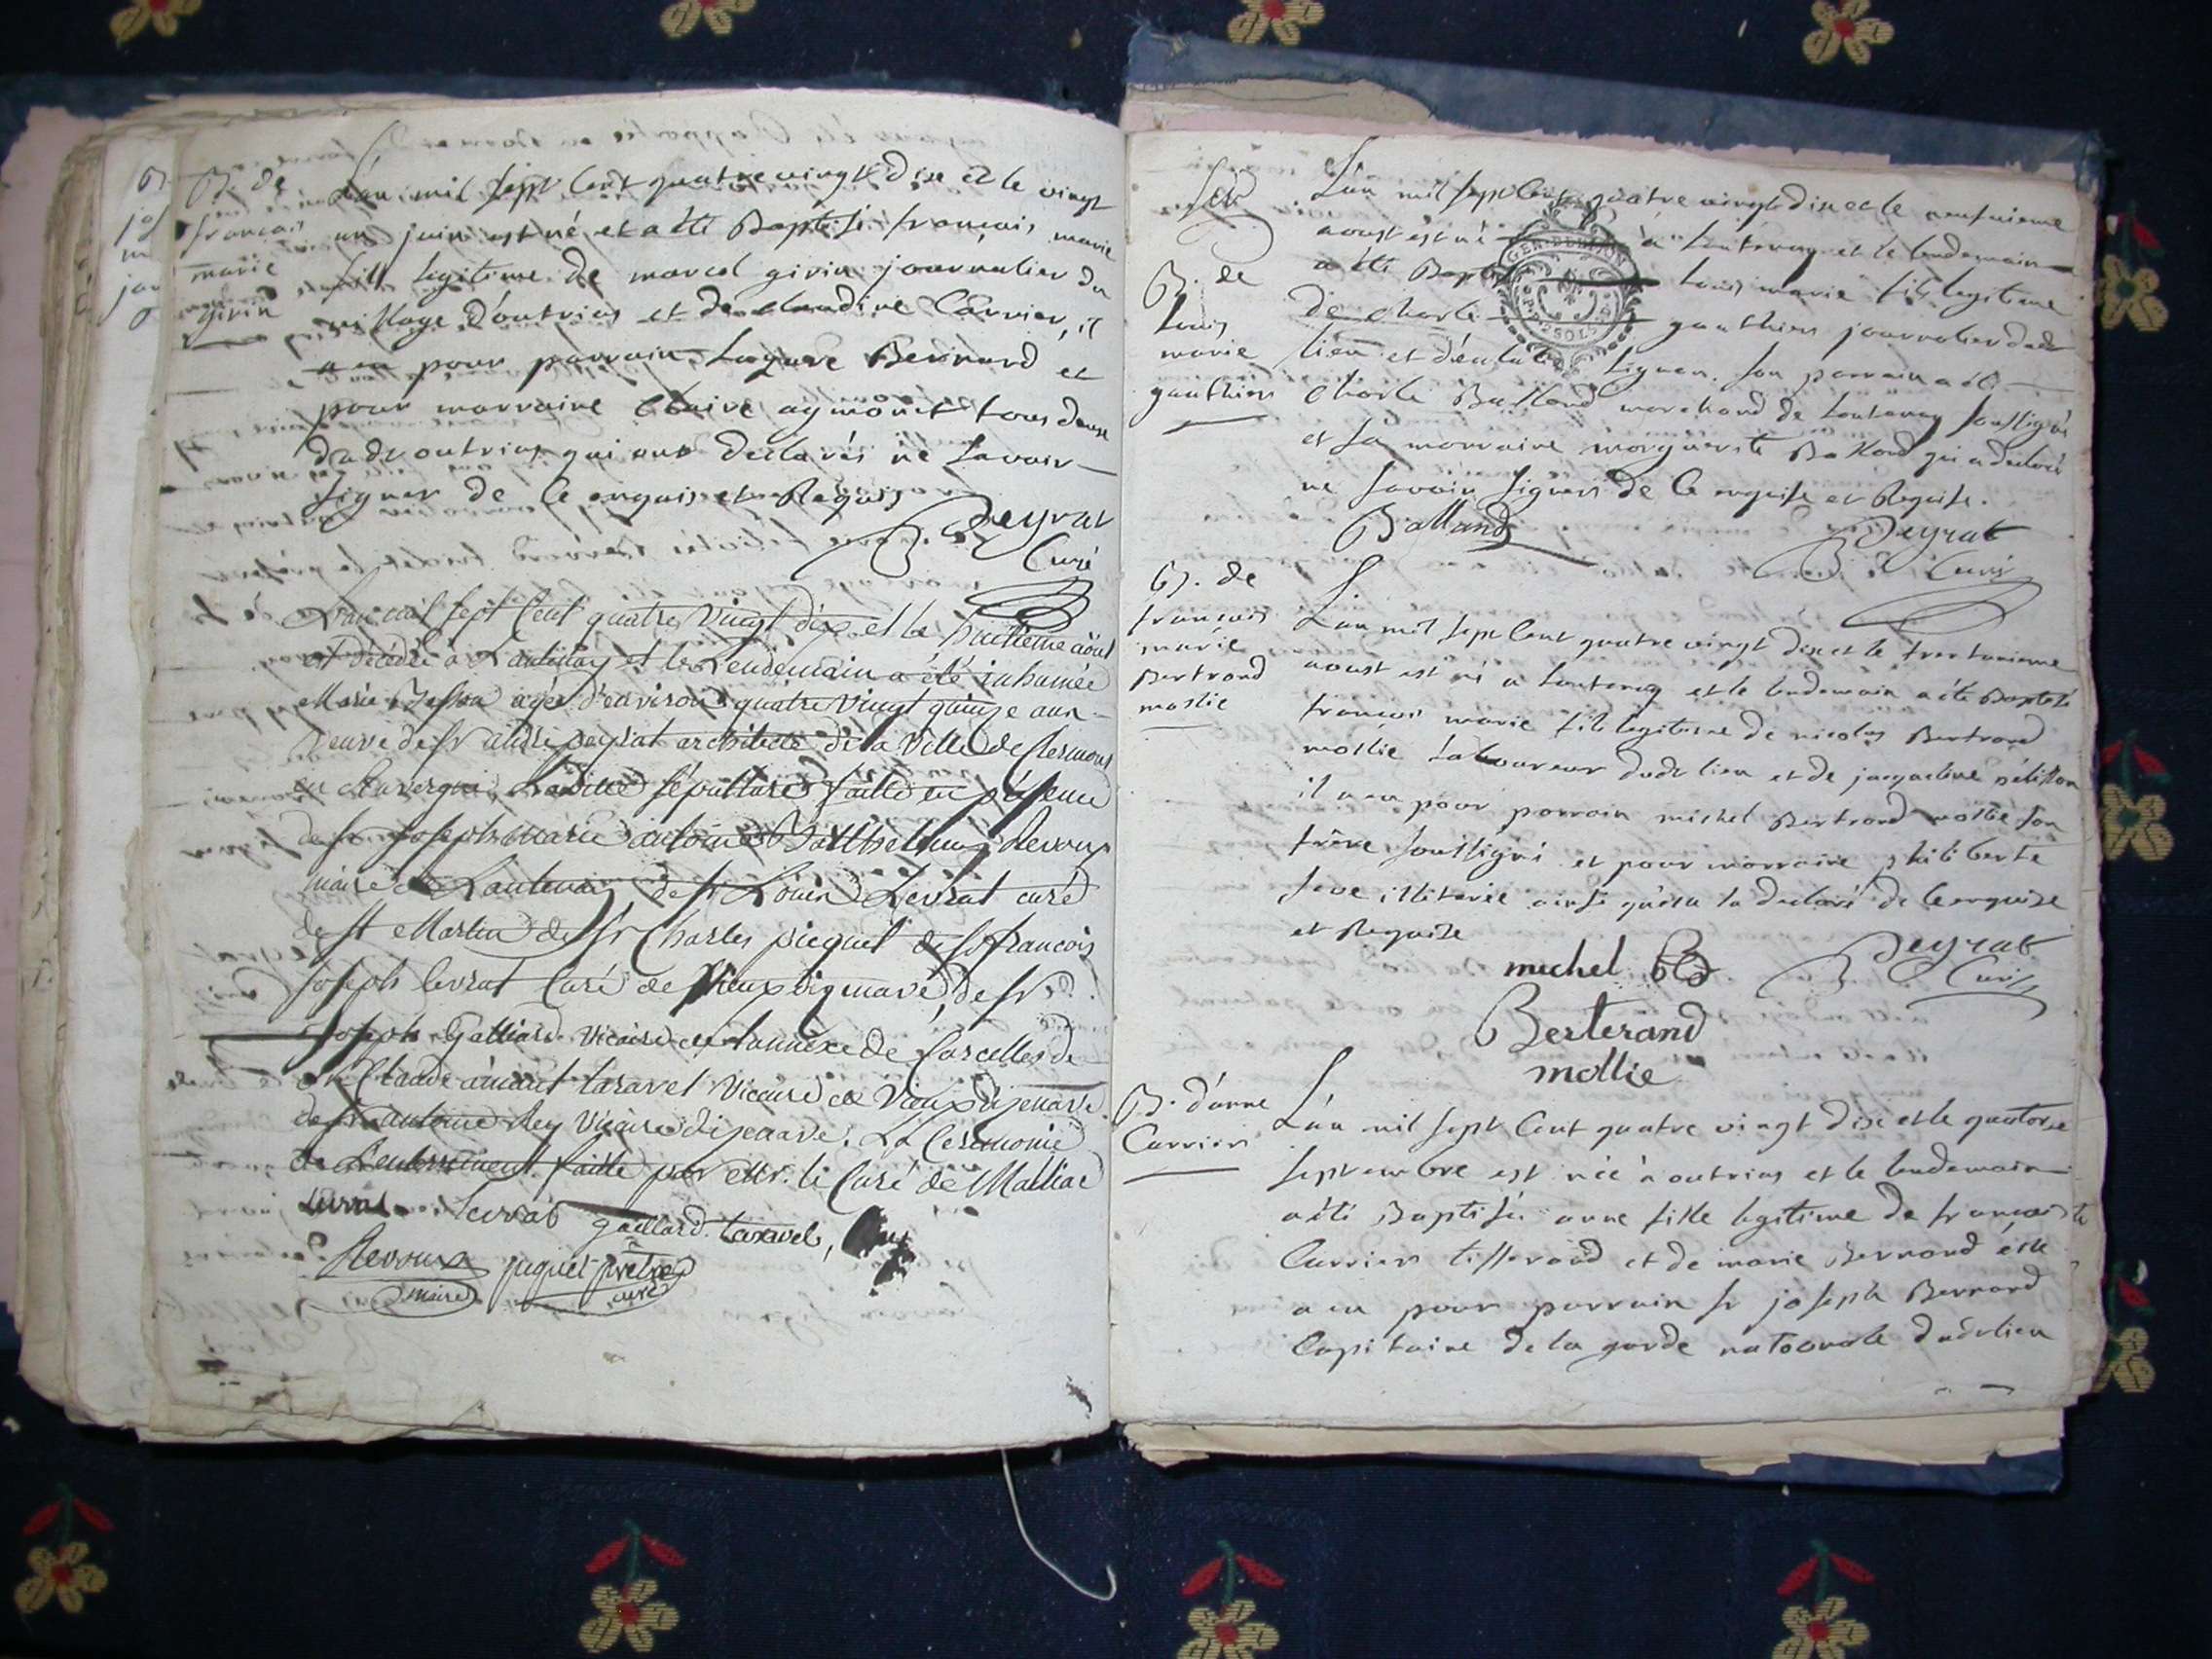 B. de
francois
marie
girin
L'an mil sept Cent quatre vingt dix et le vingt
un juin est né et a été Baptisé francois marie
fils legitime de marcel girin journalier du
village d'outrias et de claudine Carrier, il
a eu pour parrain Lazare Bernard et
pour marraine Claire aymonet tous deux
dudt outrias qui ont declarés ne savoir
signer de ce enquis et Requis
Deyrat
Curé
L'an mil sept Cent quatre vingt dix et le huitieme août
est décédée a Lantenay et le Lendemain a été inhumée
Marie agée d'environ quatre vingt quinze ans
veuve de sr architecte de la ville de Clermont
en auvergne, Ladite sépulture faitte en présence
de sr Joseph marie antoine Barthelemy Revoux
maire de Lantenay, de sr Louis Levrat curé
de st Martin de sr Charles piquet de sr francois
joseph levrat Curé de vieux digenave, de sr
Joseph Galliard vicaire en l'annexe de Corcelles de
sr Claude aimant taravel vicaire de Vieux d'jzenave
de sr antoine Rey vicaire dizenave. La Ceremonie
de Lenterrement faitte par Mr. le Curé de Maillac
Levrat Levrat gaillard. taravel,
Revoux piquet prêtre
maire curé
B. de
Louis
marie
gauthier
L'an mil sept Cent quatre vingt dix et le neufvieme
aoust est né a Lantenay et le lendemain
a été Baptisé Louis marie fils legitime
de charle gauthier journalier dudt
lieu et d'eulalie Lignon. son parrain a été
Charle Balland marchand de Lantenay soussigné
et sa marraine marguerite Balland qui a declaré
ne savoir signer de Ce enquise et Requise.
GEN. DE DIJON
Balland Deyrat
Curé
B. de
francois
marie
Bertrand
mollie
L'an mil sept Cent quatre vingt dix et le trentunieme
aoust est né a Lantenay et le lendemain a été Baptisé
francois marie fils legitime de nicolas Bertrand
mollie Laboureur dudt lieu et de jacqueline pélisson
il a eu pour parrain michel Bertrand mollie son
frère soussigné et pour marraine philiberte
seve illiterée ainsi qu'elle la declaré de Ce enquise
et Requise
Deyrat
Curé
michel
Berterand
mollie
B. d'anne
Carrier
L'an mil sept Cent quatre vingt dix et le quatorze
septembre est née a outrias et le lendemain
a été Baptisée anne fille legitime de francois
Carrier tisserand et de marie Bernard elle
a eu pour parrain sr joseph Bernard
Capitaine de la garde nationale dudt lieu